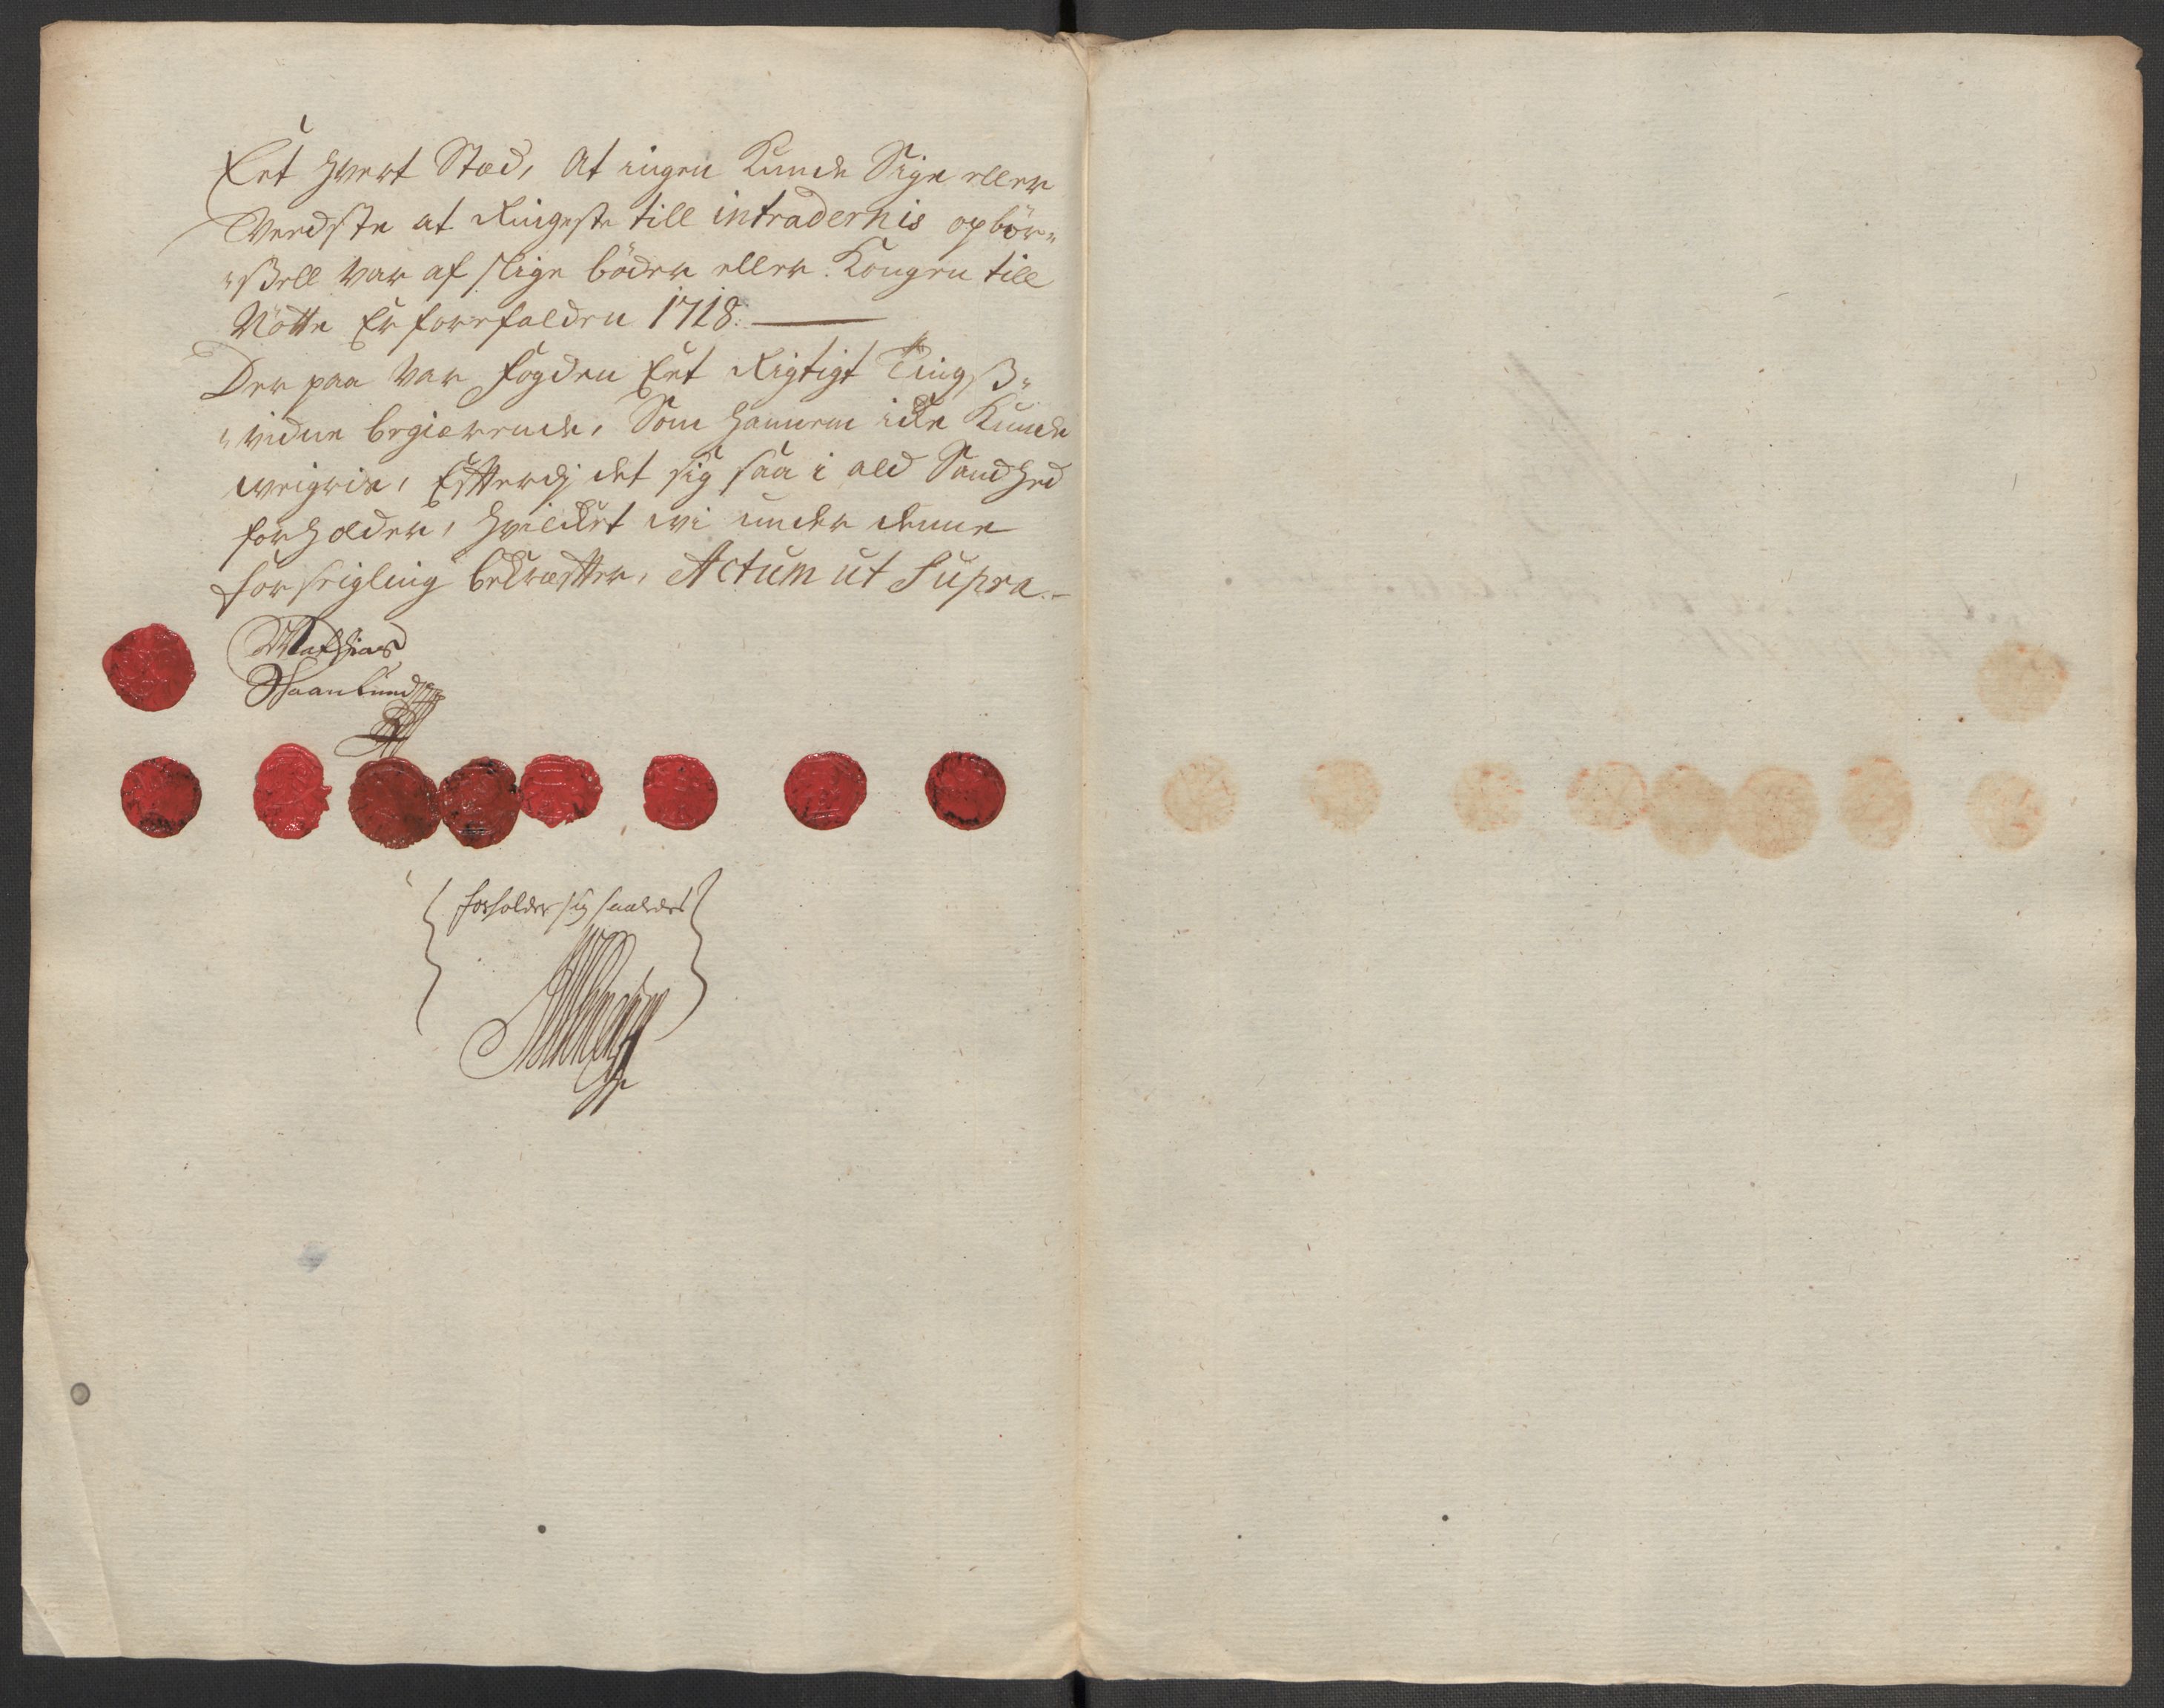 Eet hvert Stæd, At ingen Kunde Sige eller
Vendste at Ringeste till intradernis opbör„
„ßell var af slige böder eller Kongen till
Nötte Er forefalden 1718.
Der paa var fogden Eet Rigtigt Tingß„
„vidne begierende, Som hannem icke Kunde
weigris, Effterdj det sig saa i ald Sandhed
forholder, hvilcket wi under denne
forseigling bekræffter, Actum ut Supra.
Mathias
forholder sig saaledes